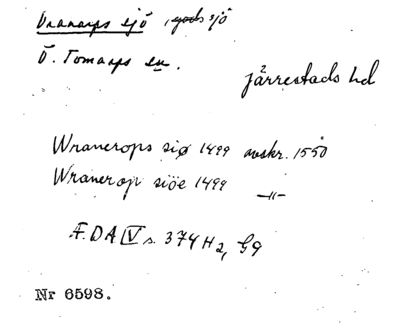 Vranarps sjö, gods sjö
Ö. Tomarps sn.
Järrestads hd
Wranerops siø 1499 avskr. 1550
Wranerop siöe 1499 —"—
Æ.DA IV s. 374 H2, G9
Nr 6598.